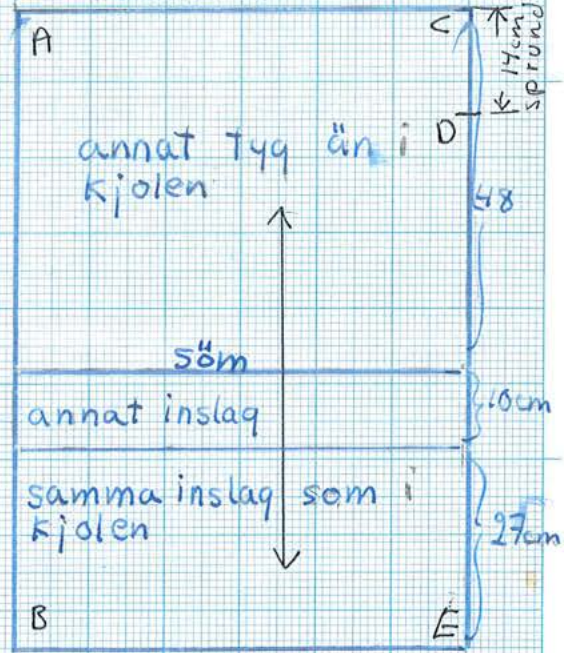 A
C
14cm
sprund
D
annat tyg än i
kjolen
48
söm
annat inslag
10cm
samma inslag som i
kjolen
27cm
B
E